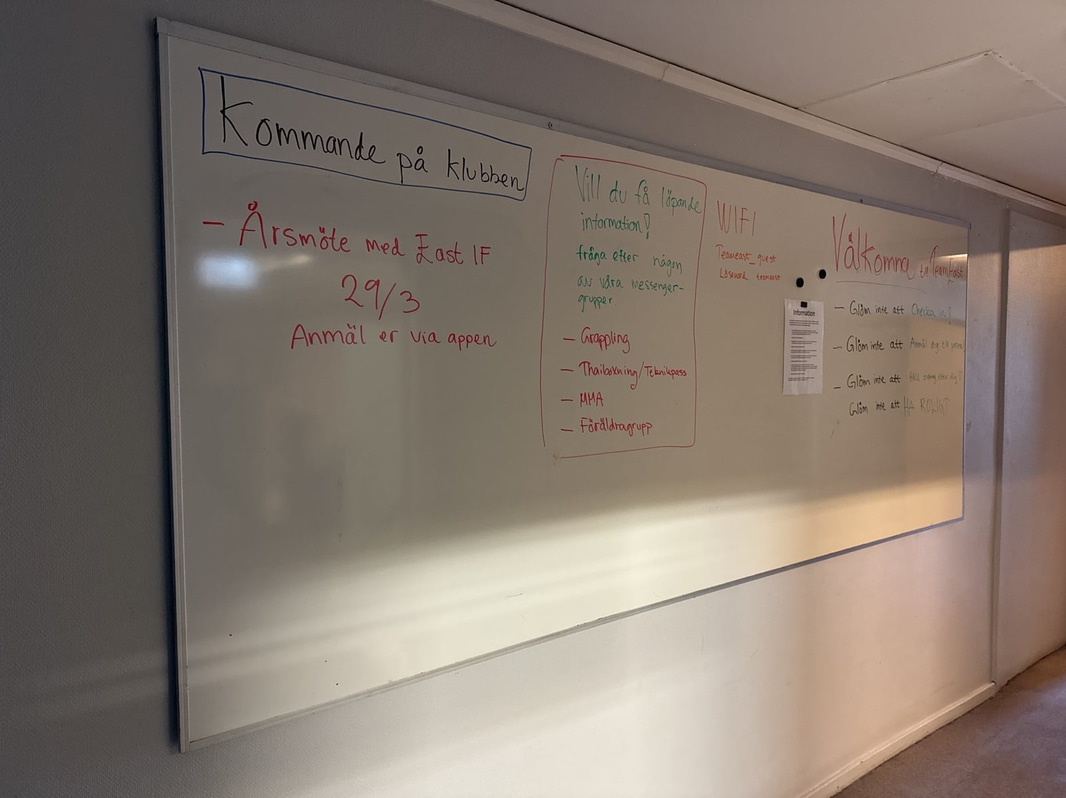 Kommande på klubben
- Årsmöte med East IF
29/3
Anmäl er via appen
Vill du få löpande
information?
fråga efter någon
av våra messenger-
grupper
- Grappling
- Thaiboxning/Teknikpass
- MMA
- Föräldragrupp
WIFI
Teameast_guest
Lösenord
Information
Välkomna till TeamEast
- Glöm inte att Checka in!
- Glöm inte att Anmäl dig till
- Glöm inte att
Glöm inte att HA ROLIGT